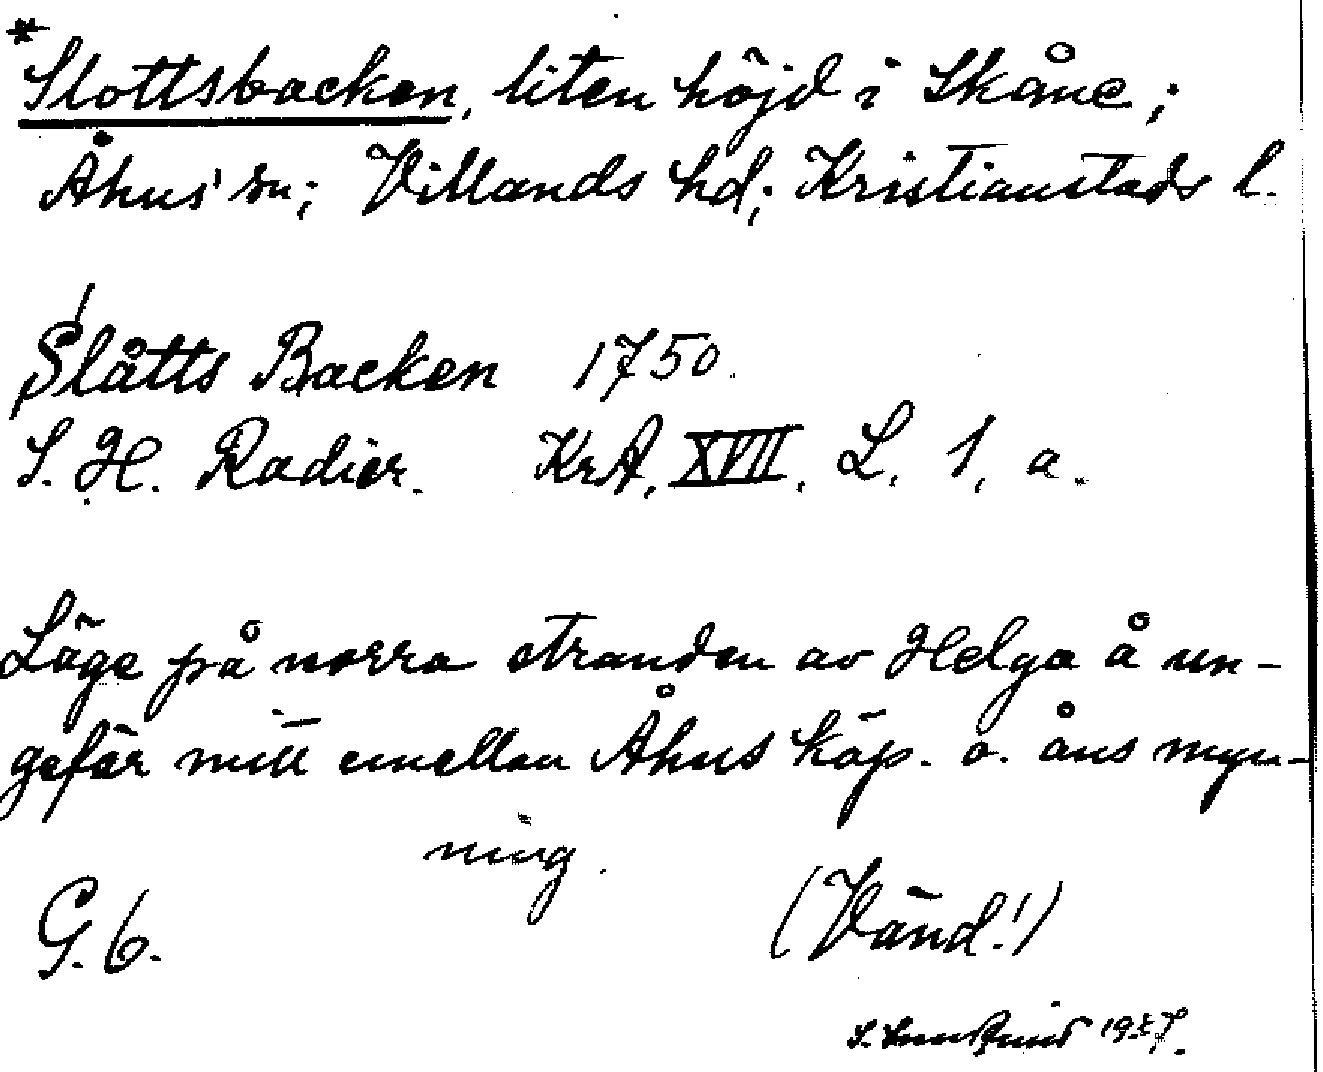 *Slottsbacken, liten höjd i Skåne;
Åhus' sn; Villands hd; Kristianstads l.
Slåtts Backen 1750.
S. H. Radier. KrA, XVII, L, 1, a.
Läge på norra stranden av Helga å un-
gefär mitt emellan Åhus köp. o. åns myn-
ning.
G. 6.
(Vänd!)
S.